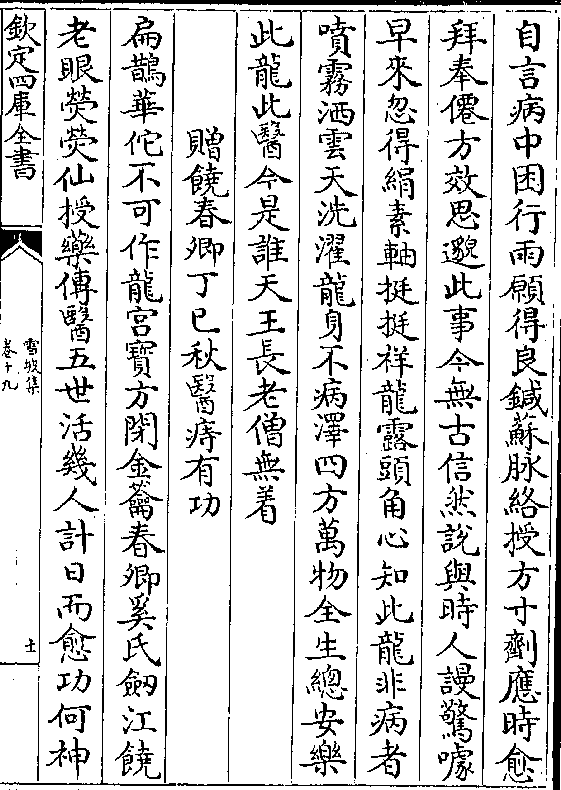 自言病中困行雨願得良鍼蘇脉絡授方寸劑應時愈
拜奉僊方效思邈此事今無古信然說與時人謾驚㗲
早來忽得絹素軸挺挺祥龍露頭角心知此龍非病者
噴霧洒雲天洗濯龍身不病澤四方萬物全生總安樂
此龍此醫今是誰天王長老僧無着
贈饒春卿丁巳秋醫痔有功
扁鵲華佗不可作龍宮寶方閉金籥春卿奚氏劒江饒
老眼熒熒仙授藥傳醫五世活幾人計日而愈功何神
欽定四庫全書
雪坡集
卷十九
士